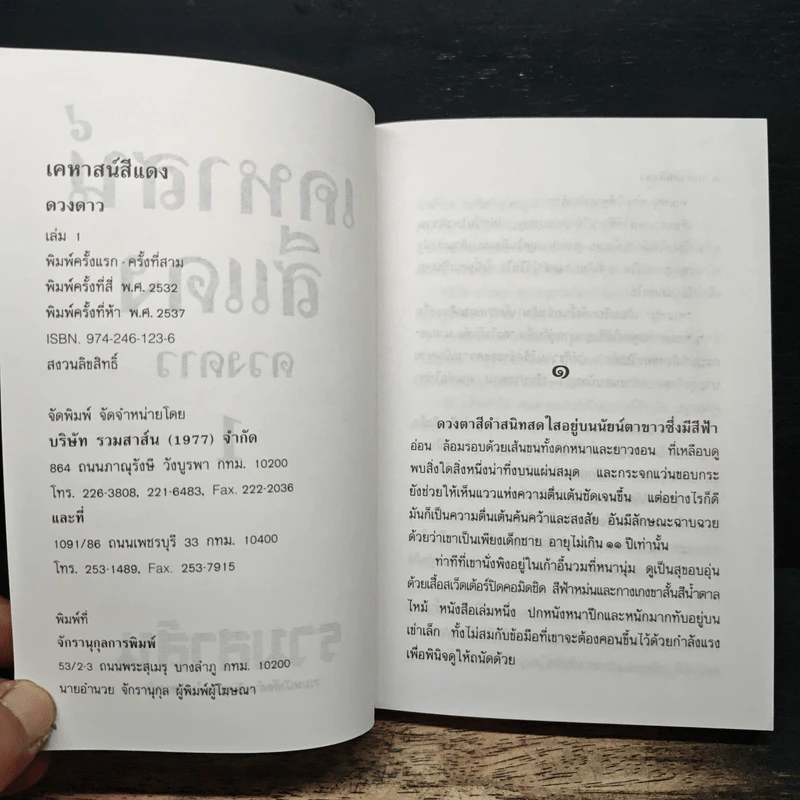 เคหาสน์สีแดง
ดวงดาว
เล่ม 1
พิมพ์ครั้งแรก - ครั้งที่สาม
พิมพ์ครั้งที่สี่ พ.ศ. 2532
พิมพ์ครั้งที่ห้า พ.ศ. 2537
ISBN. 974-246-123-6
สงวนลิขสิทธิ์
จัดพิมพ์ จัดจำหน่ายโดย
บริษัท รวมสาส์น (1977) จำกัด
864 ถนนภาณุรังษี วังบูรพา กทม. 10200
โทร. 226-3808, 221-6483, Fax. 222-2036
และที่
1091/86 ถนนเพชรบุรี 33 กทม. 10400
โทร. 253-1489, Fax. 253-7915
พิมพ์ที่
จักรานุกุลการพิมพ์
53/2-3 ถนนพระสุเมรุ บางลำภู กทม. 10200
นายอำนวย จักรานุกุล ผู้พิมพ์ผู้โฆษณา
๑
ดวงตาสีดำสนิทสดใสอยู่บนนัยน์ตาขาวซึ่งมีสีฟ้า
อ่อน ล้อมรอบด้วยเส้นขนทั้งดกหนาและยาวงอน ที่เหลือบดู
พบสิ่งใดสิ่งหนึ่งน่าทึ่งบนแผ่นสมุด และกระจกแว่นขอบกระ
ยังช่วยให้เห็นแววแห่งความตื่นเต้นชัดเจนขึ้น แต่อย่างไรก็ดี
มันก็เป็นความตื่นเต้นค้นคว้าและสงสัย อันมีลักษณะฉาบฉวย
ด้วยว่าเขาเป็นเพียงเด็กชาย อายุไม่เกิน ๑๑ ปีเท่านั้น
ท่าทีที่เขานั่งพิงอยู่ในเก้าอี้นวมที่หนานุ่ม ดูเป็นสุขอบอุ่น
ด้วยเสื้อสเว็ตเตอร์ปิดคอมิดชิด สีฟ้าหม่นและกางเกงขาสั้นสีน้ำตาล
ไหม้ หนังสือเล่มหนึ่ง ปกหนังหนาปึกและหนักมากทับอยู่บน
เข่าเล็ก ทั้งไม่สมกับข้อมือที่เขาจะต้องคอนขึ้นไว้ด้วยกำลังแรง
เพื่อพินิจดูให้ถนัดด้วย